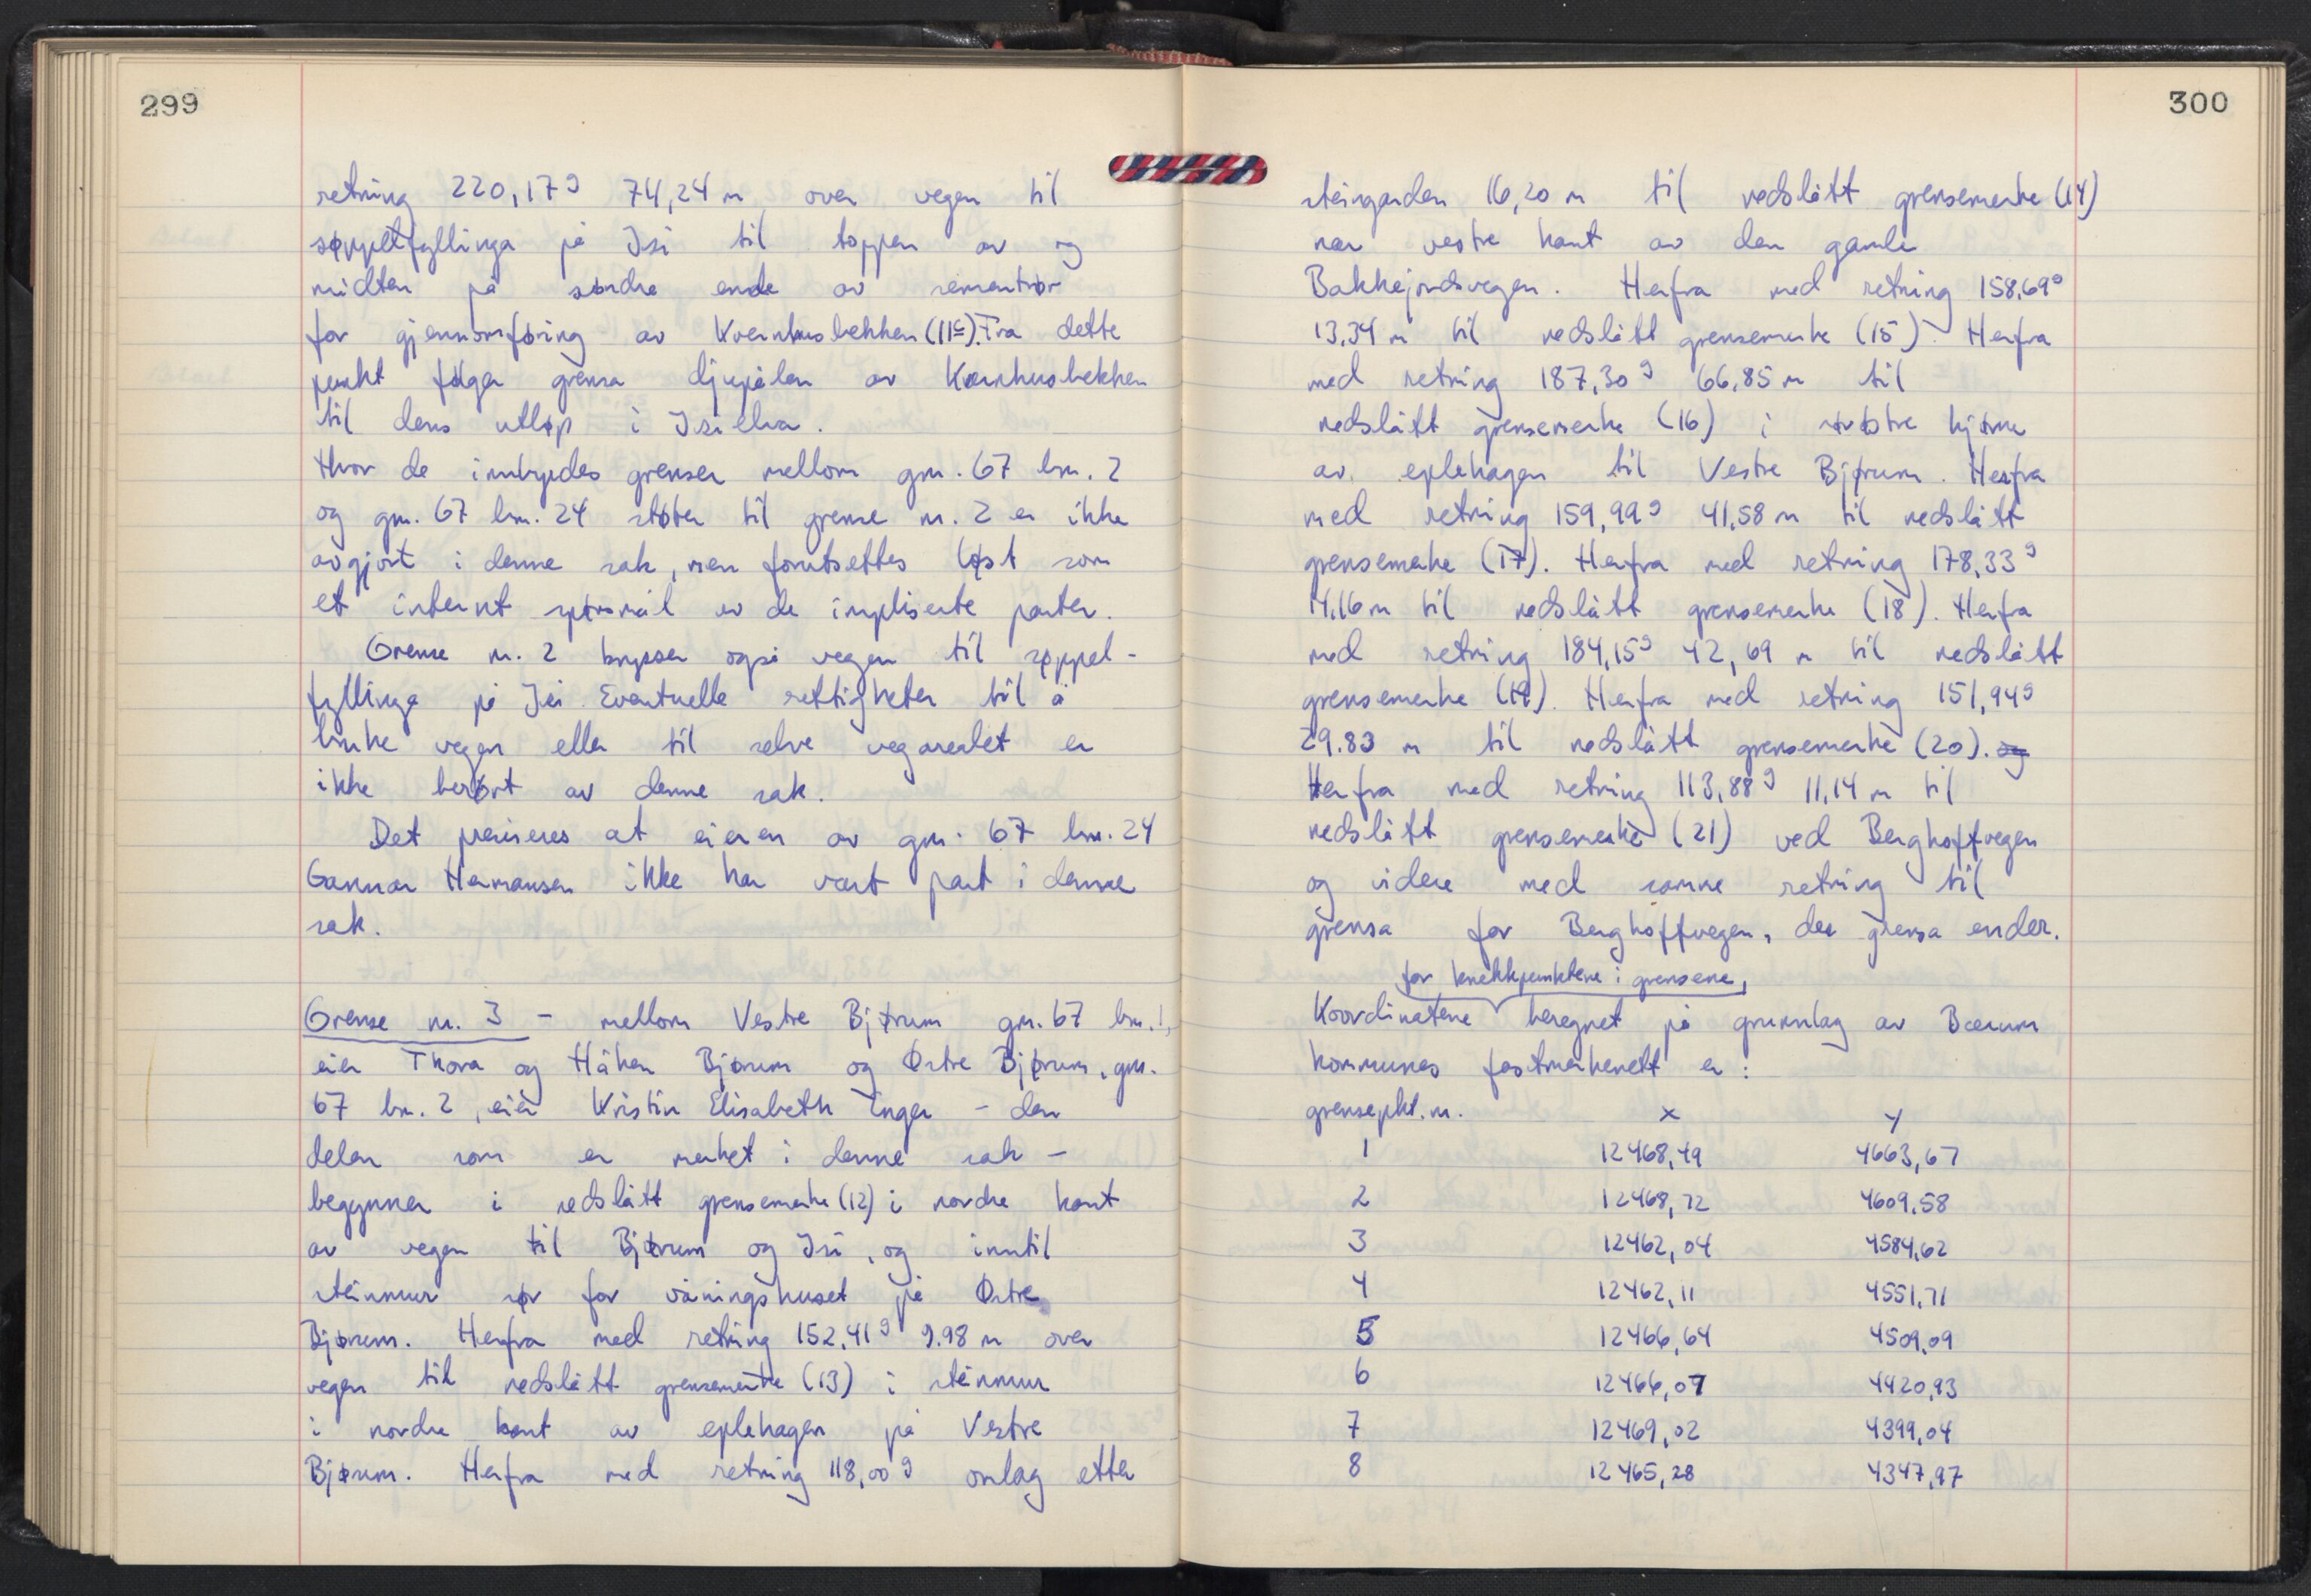 299
retning 220,17g 74,24 m over vegen til
søppelfyllinga på Isi til toppen av og
midten på søndre ende av sementrør
for gjennomføring av Kvernhusbekken (11c). Fra dette
punkt følger grensa djupålen av Kvernhusbekken
til dens utløp i Isielva.
Hvor de innbyrdes grenser mellom gnr. 67 bnr. 2
og gnr. 67 bnr. 24 støter til grense nr. 2 er ikke
avgjort i denne sak, men forutsettes løst som
et internt spørsmål av de impliserte parter.
Grense nr. 2 krysser også vegen til søppel-
fyllinga på Isi. Eventuelle rettigheter til å
bruke vegen eller til selve vegarealet er
ikke berørt av denne sak.
Det presiseres at eieren av gnr. 67 bnr. 24
Gunnar Hermansen ikke har vært part i denne
sak.
Grense nr. 3 - mellom Vestre Bjørum gnr. 67 bnr. 1,
eier Thora og Håkon Bjørum og Østre Bjørum, gnr.
67 bnr. 2, eier Kristin Elisabeth Enger - den
delen som er merket i denne sak -
begynner i nedslått grensemerke (12) i nordre kant
av vegen til Bjørum og Isi, og inntil
steinmur sør for våningshuset på Østre
Bjørum. Herfra med retning 152,41g 9.98 m over
vegen til nedslått grensemerke (13) i steinmur
i nordre kant av eplehagen på Vestre
Bjørum. Herfra med retning 118,00g omlag etter
300
steingarden 16,20 m til nedslått grensemerke (14)
nær vestre kant av den gamle
Bakkejordsvegen. Herfra med retning 158,69g
13,34 m til nedslått grensemerke (15). Herfra
med retning 187,30g 66,85 m til
nedslått grensemerke (16) i nørdre hjørne
av eplehagen til Vestre Bjørum. Herfra
med retning 159,99g 41,58 m til nedslått
grensemerke (17). Herfra med retning 178,33g
14,16 m til nedslått grensemerke (18). Herfra
med retning 184,15g 42,69 m til nedslått
grensemerke (19). Herfra med retning 151,94g
29.83 m til nedslått grensemerke (20). og
Herfra med retning 113,88g 11,14 m til
nedslått grensemerke (21) ved Berghoffvegen
og videre med samme retning til
grensa for Berghoffvegen, der grensa ender.
for knekkpunktene i grensene,
Koordinatene beregnet på grunnlag av Bærum
kommunes fastmerkenett er:
grensepkt. nr. x y
1 12468,49 4663,67
2 12468,72 4609.58
3 12462,04 4584,62
4 12462,11 4551,71
5 12466,64 4509,09
6 12466,07 4420,93
7 12469,02 4399,04
8 12465,28 4347,97